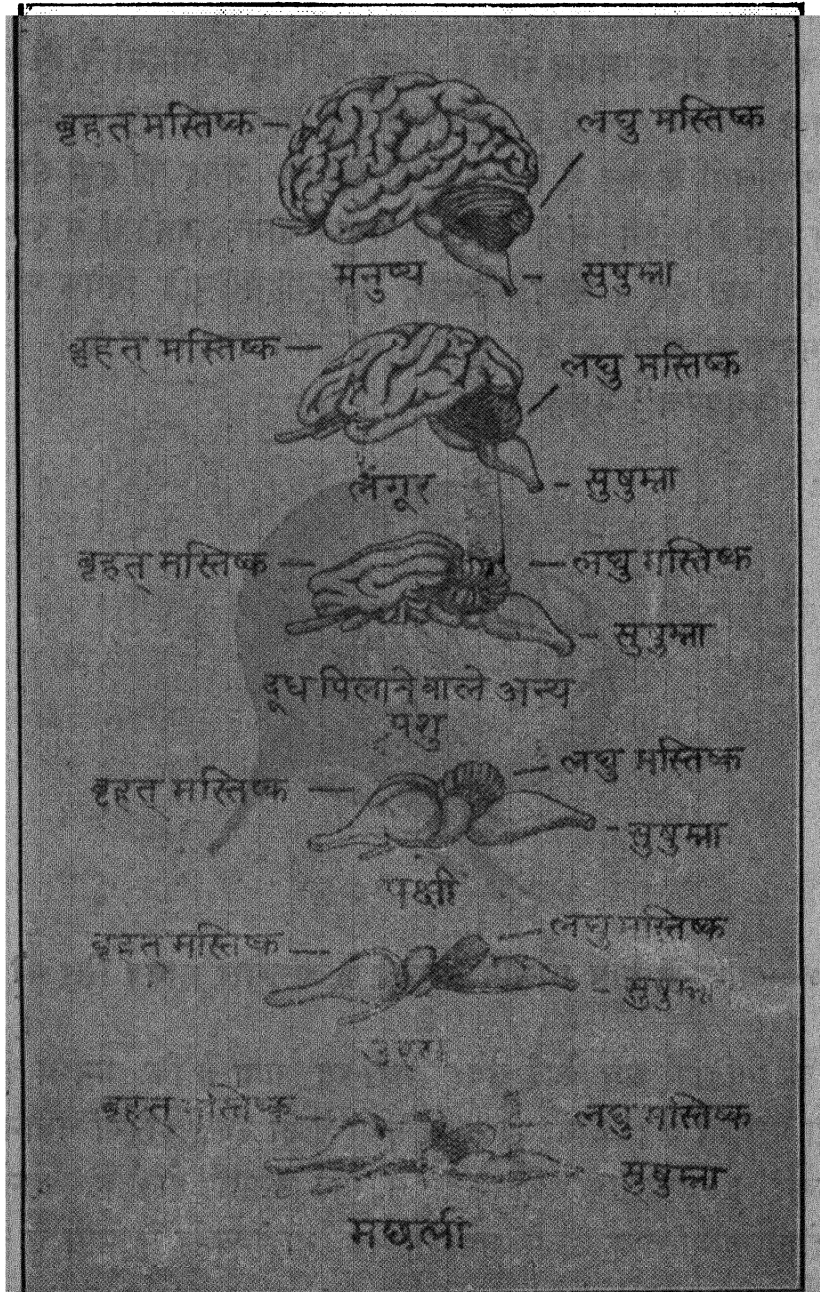 बृहत् मस्तिष्क
लघु मस्तिष्क
मनुष्य
सुषुम्ना
बृहत् मस्तिष्क
लघु मस्तिष्क
लंगूर
सुषुम्ना
बृहत् मस्तिष्क
लघु मस्तिष्क
सुषुम्ना
दूध पिलाने वाले अन्य
पशु
लघु मस्तिष्क
बृहत् मस्तिष्क
सुषुम्ना
पक्षी
लघु मस्तिष्क
बृहत् मस्तिष्क
सुषुम्ना
उरग
बृहत् मस्तिष्क
लघु मस्तिष्क
सुषुम्ना
मछली